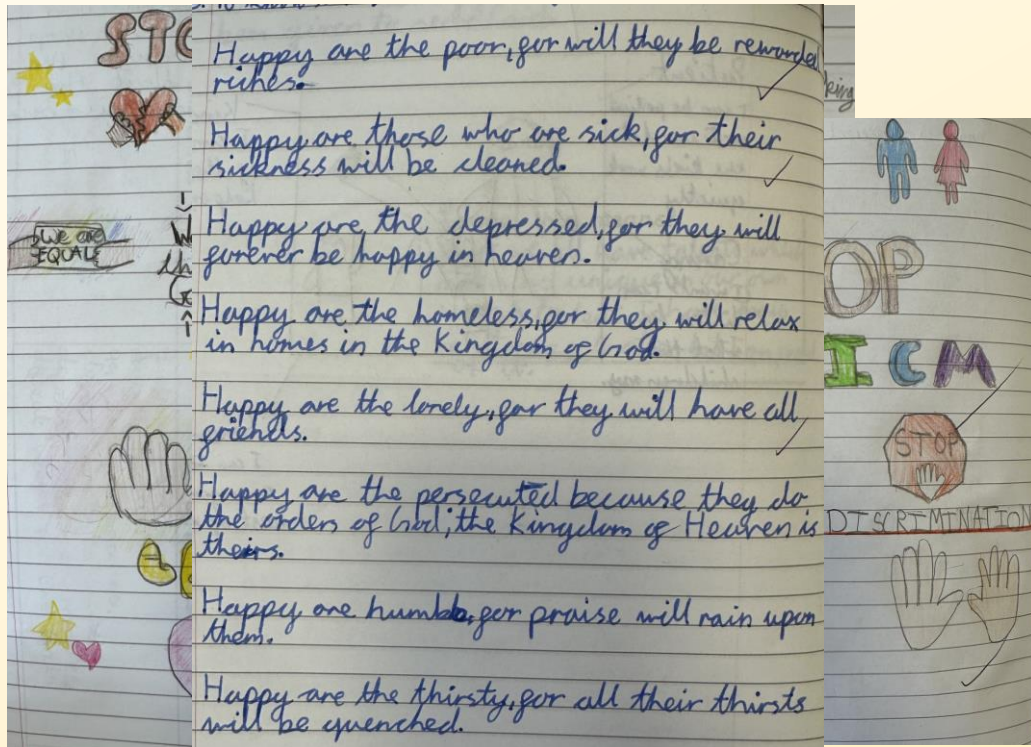 STO
WE ARE
EQUAL
Happy are the poor, for will they be rewarded
riches.
Happy are those who are sick, for their
sickness will be cleaned.
Happy are the depressed, for they will
forever be happy in heaven.
Happy are the homeless, for they will relax
in homes in the Kingdom of God.
Happy are the lonely, for they will have all
friends.
Happy are the persecuted because they do
the orders of God; the Kingdom of Heaven is
theirs.
Happy are humble, for praise will rain upon
them.
Happy are the thirsty, for all their thirsts
will be quenched.
king
OP
ICM
STOP
DISCRIMINATION